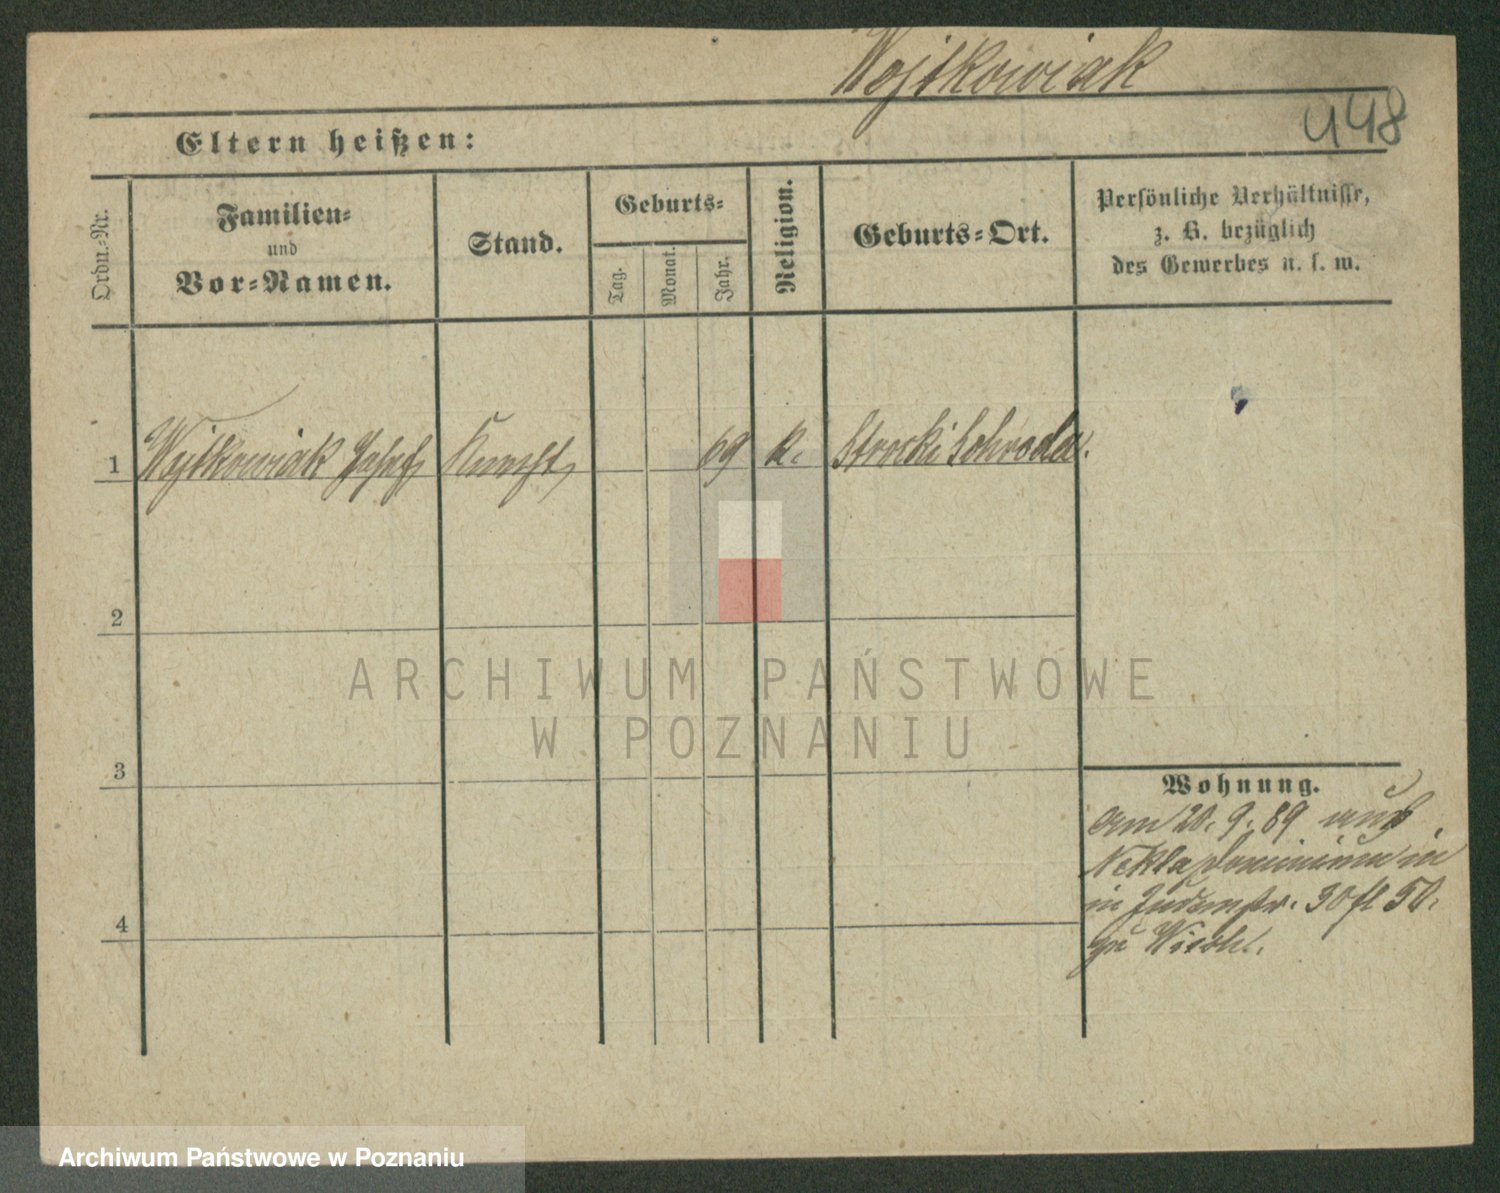 Wojtkowiak
448
Eltern heißen:
Ordn.-Nr.
Familien-
und
Vor-Namen.
Stand.
Geburts-
Tag.
Monat.
Jahr.
Religion.
Geburts-Ort.
Persönliche Verhältnisse,
z. B. bezüglich
des Gewerbes u. s. w.
1 Wojtkowiak Josef Knecht 69 k. Schroda.
2
3
4
Wohnung.
am 20. 9. 89 aus
Nekla Dominium in
in Judenstr. 30
zu
ARCHIWUM PAŃSTWOWE
W POZNANIU
Archiwum Państwowe w Poznaniu